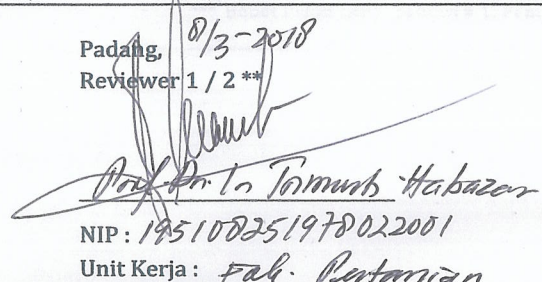 Padang, 8/3-2018
Reviewer 1 / 2 **
Prof. Dr. Ir Trimurti Habazar
NIP : 195108251978022001
Unit Kerja : Fak. Pertanian